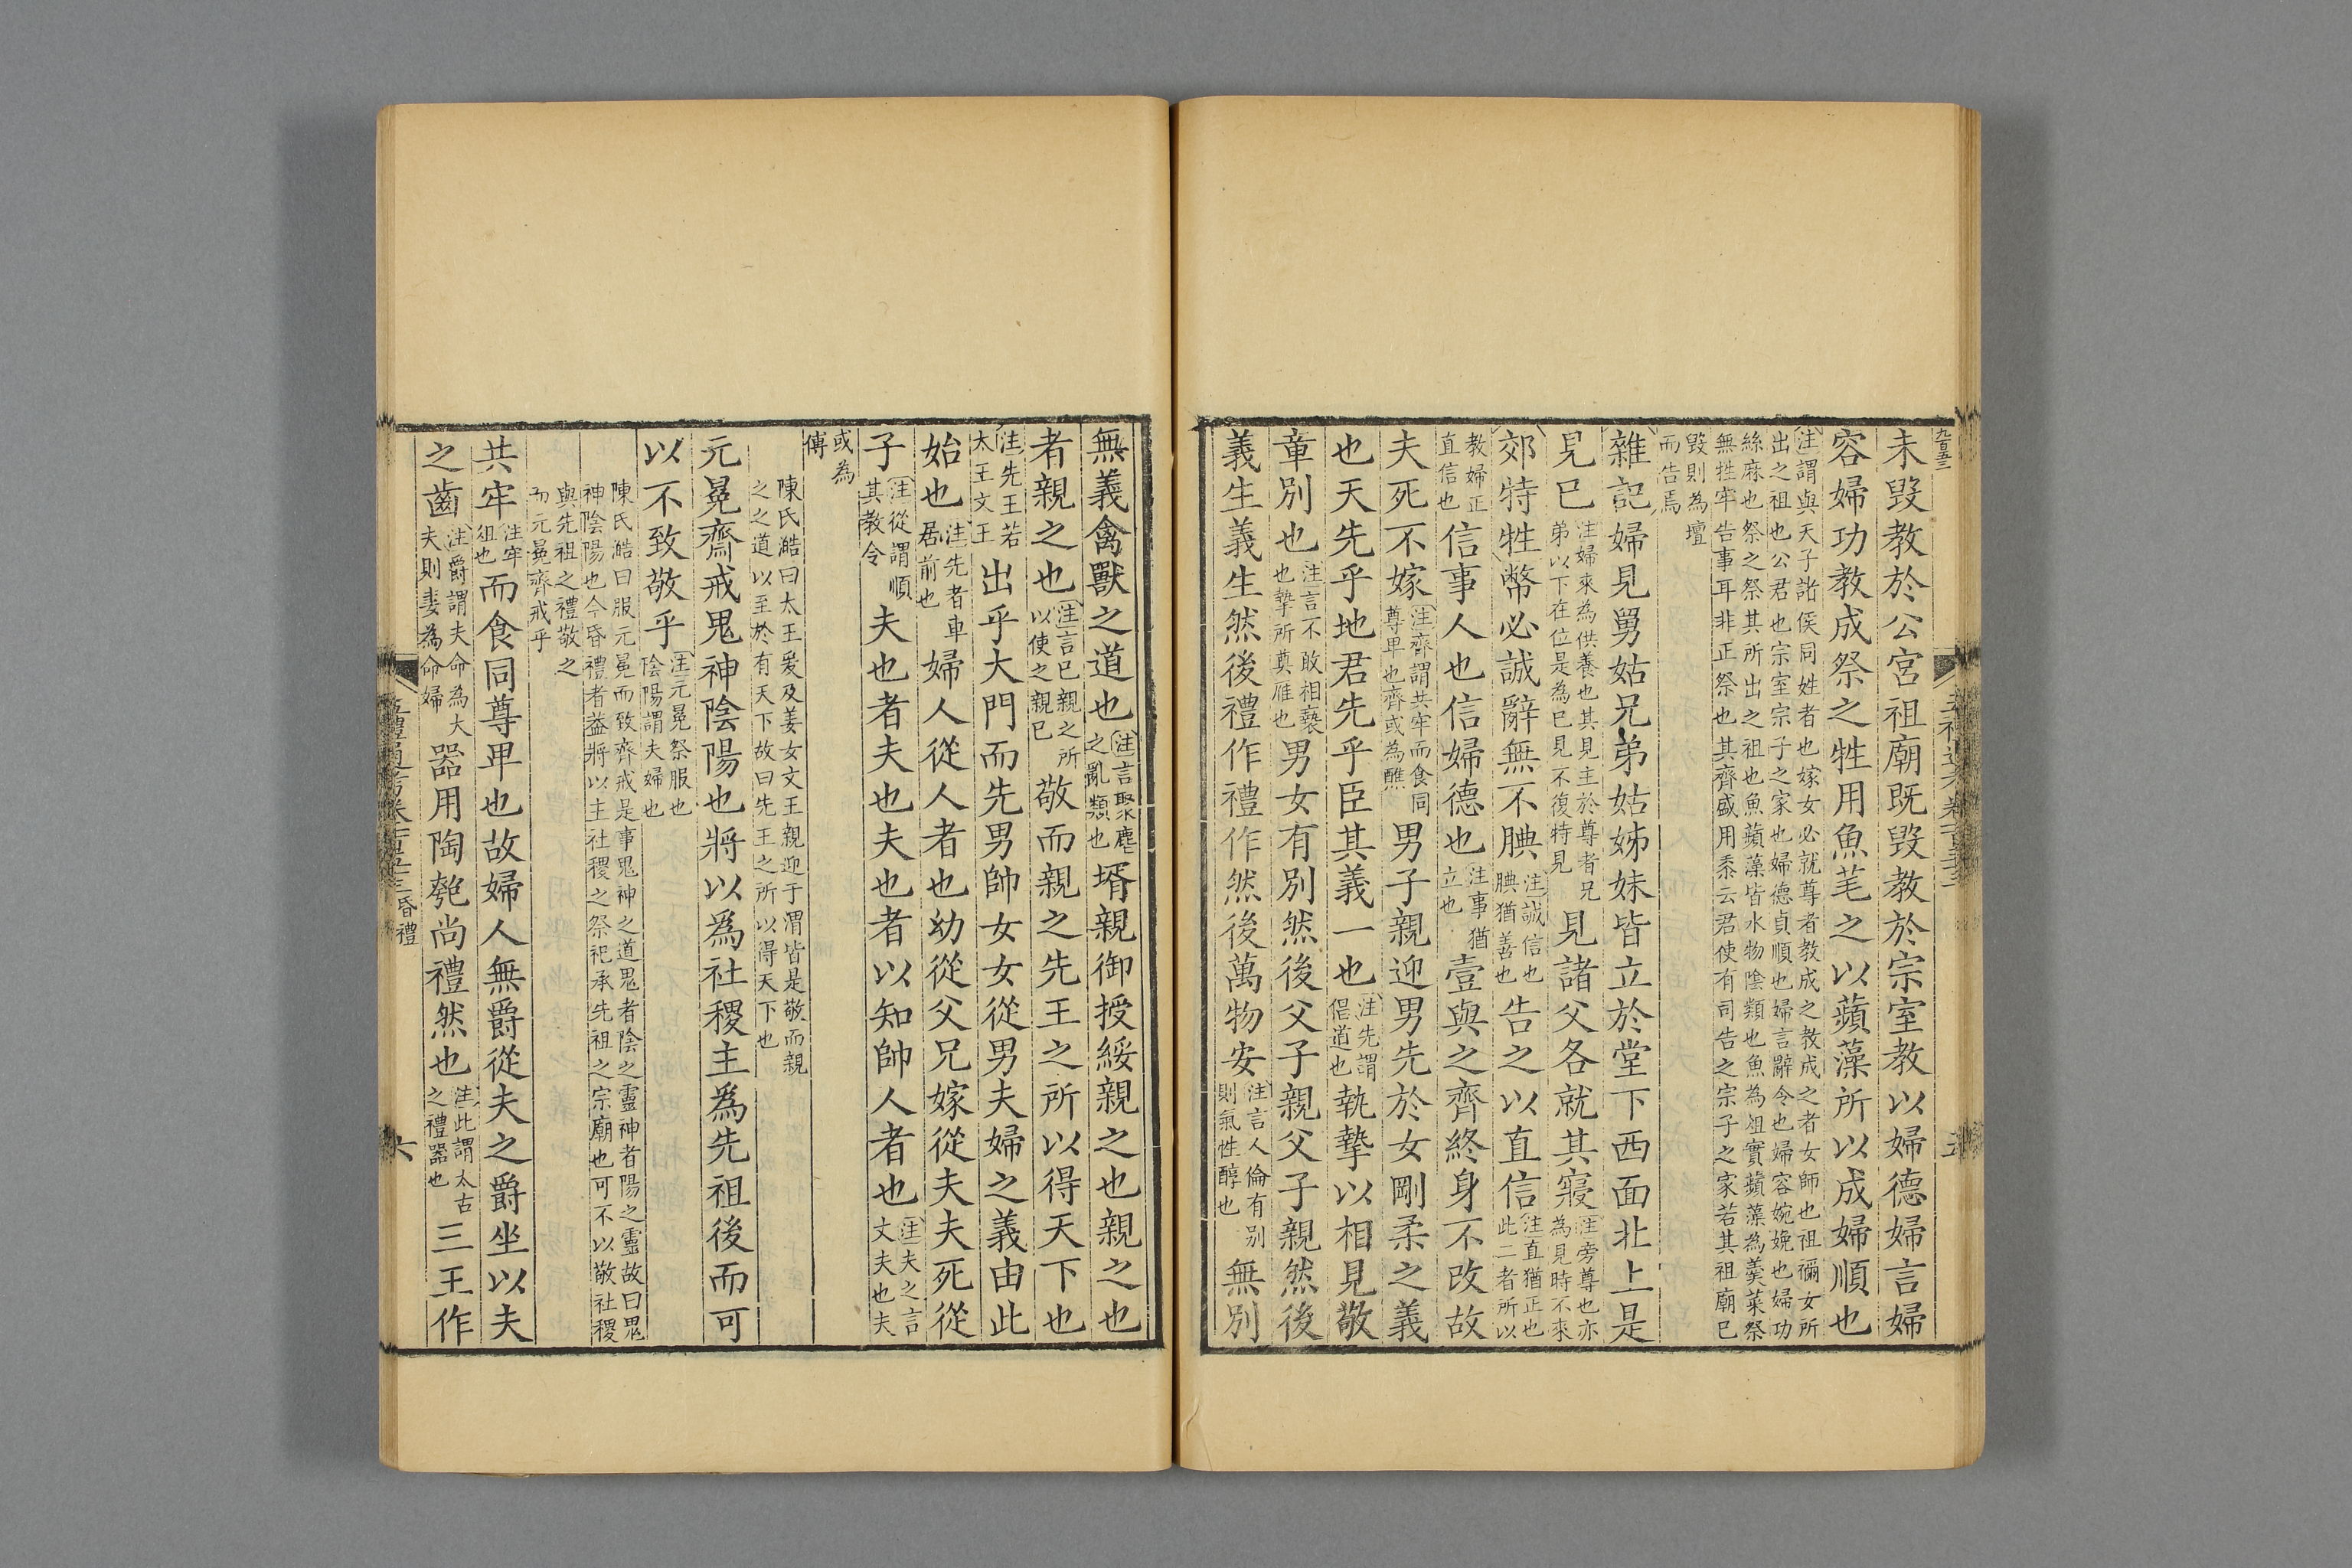 九百五三
未毀教於公宮祖廟既毀教於宗室教以婦德婦言婦
容婦功教成祭之牲用魚芼之以蘋藻所以成婦順也
注謂與天子諸侯同姓者也嫁女必就尊者教成之教成之者女師也祖禰女所
出之祖也公君也宗室宗子之家也婦德貞順也婦言辭令也婦容婉娩也婦功
絲麻也祭之祭其所出之祖也魚蘋藻皆水物陰類也魚為俎實蘋藻為羹菜祭
無牲牢告事耳非正祭也其齊盛用黍云君使有司告之宗子之家若其祖廟已
毀則為壇
而告焉
雜記婦見舅姑兄弟姑姊妹皆立於堂下西面北上是
見已注婦來為供養也其見主於尊者兄弟以下在位是為已見不復特見見諸父各就其寢注旁尊也亦為見時不來
郊特牲幣必誠辭無不腆注誠信也腆猶善也告之以直信注直猶正也此二者所以
教婦正直信也信事人也信婦德也注事猶立也壹與之齊終身不改故
夫死不嫁注齊謂共牢而食同尊卑也齊或為醮男子親迎男先於女剛柔之義
也天先乎地君先乎臣其義一也注先謂倡道也執摯以相見敬
章別也注言不敢相褻也摯所奠雁也男女有別然後父子親父子親然後
義生義生然後禮作禮作然後萬物安注言人倫有別則氣性醇也無別
五
無義禽獸之道也注言聚麀之亂類也壻親御授綏親之也親之也
者親之也注言已親之所以使之親已敬而親之先王之所以得天下也
注先王若太王文王出乎大門而先男帥女女從男夫婦之義由此
始也注先者車居前也婦人從人者也幼從父兄嫁從夫夫死從
子注從謂順其教令夫也者夫也夫也者以知帥人者也注夫之言丈夫也夫
或為
傅
陳氏澔曰太王爰及姜女文王親迎于渭皆是敬而親
之之道以至於有天下故曰先王之所以得天下也
元冕齋戒鬼神陰陽也將以爲社稷主爲先祖後而可
以不致敬乎注元冕祭服也陰陽謂夫婦也
陳氏澔曰服元冕而致齊戒是事鬼神之道鬼者陰之靈神者陽之靈故曰鬼
神陰陽也今昏禮者蓋將以主社稷之祭祀承先祖之宗廟也可不以敬社稷
與先祖之禮敬之
而元冕齊戒乎
共牢注牢俎也而食同尊卑也故婦人無爵從夫之爵坐以夫
之齒注爵謂夫命為大夫則妻為命婦器用陶匏尚禮然也注此謂太古之禮器也三王作
五禮通考卷一百五十三昏禮
六